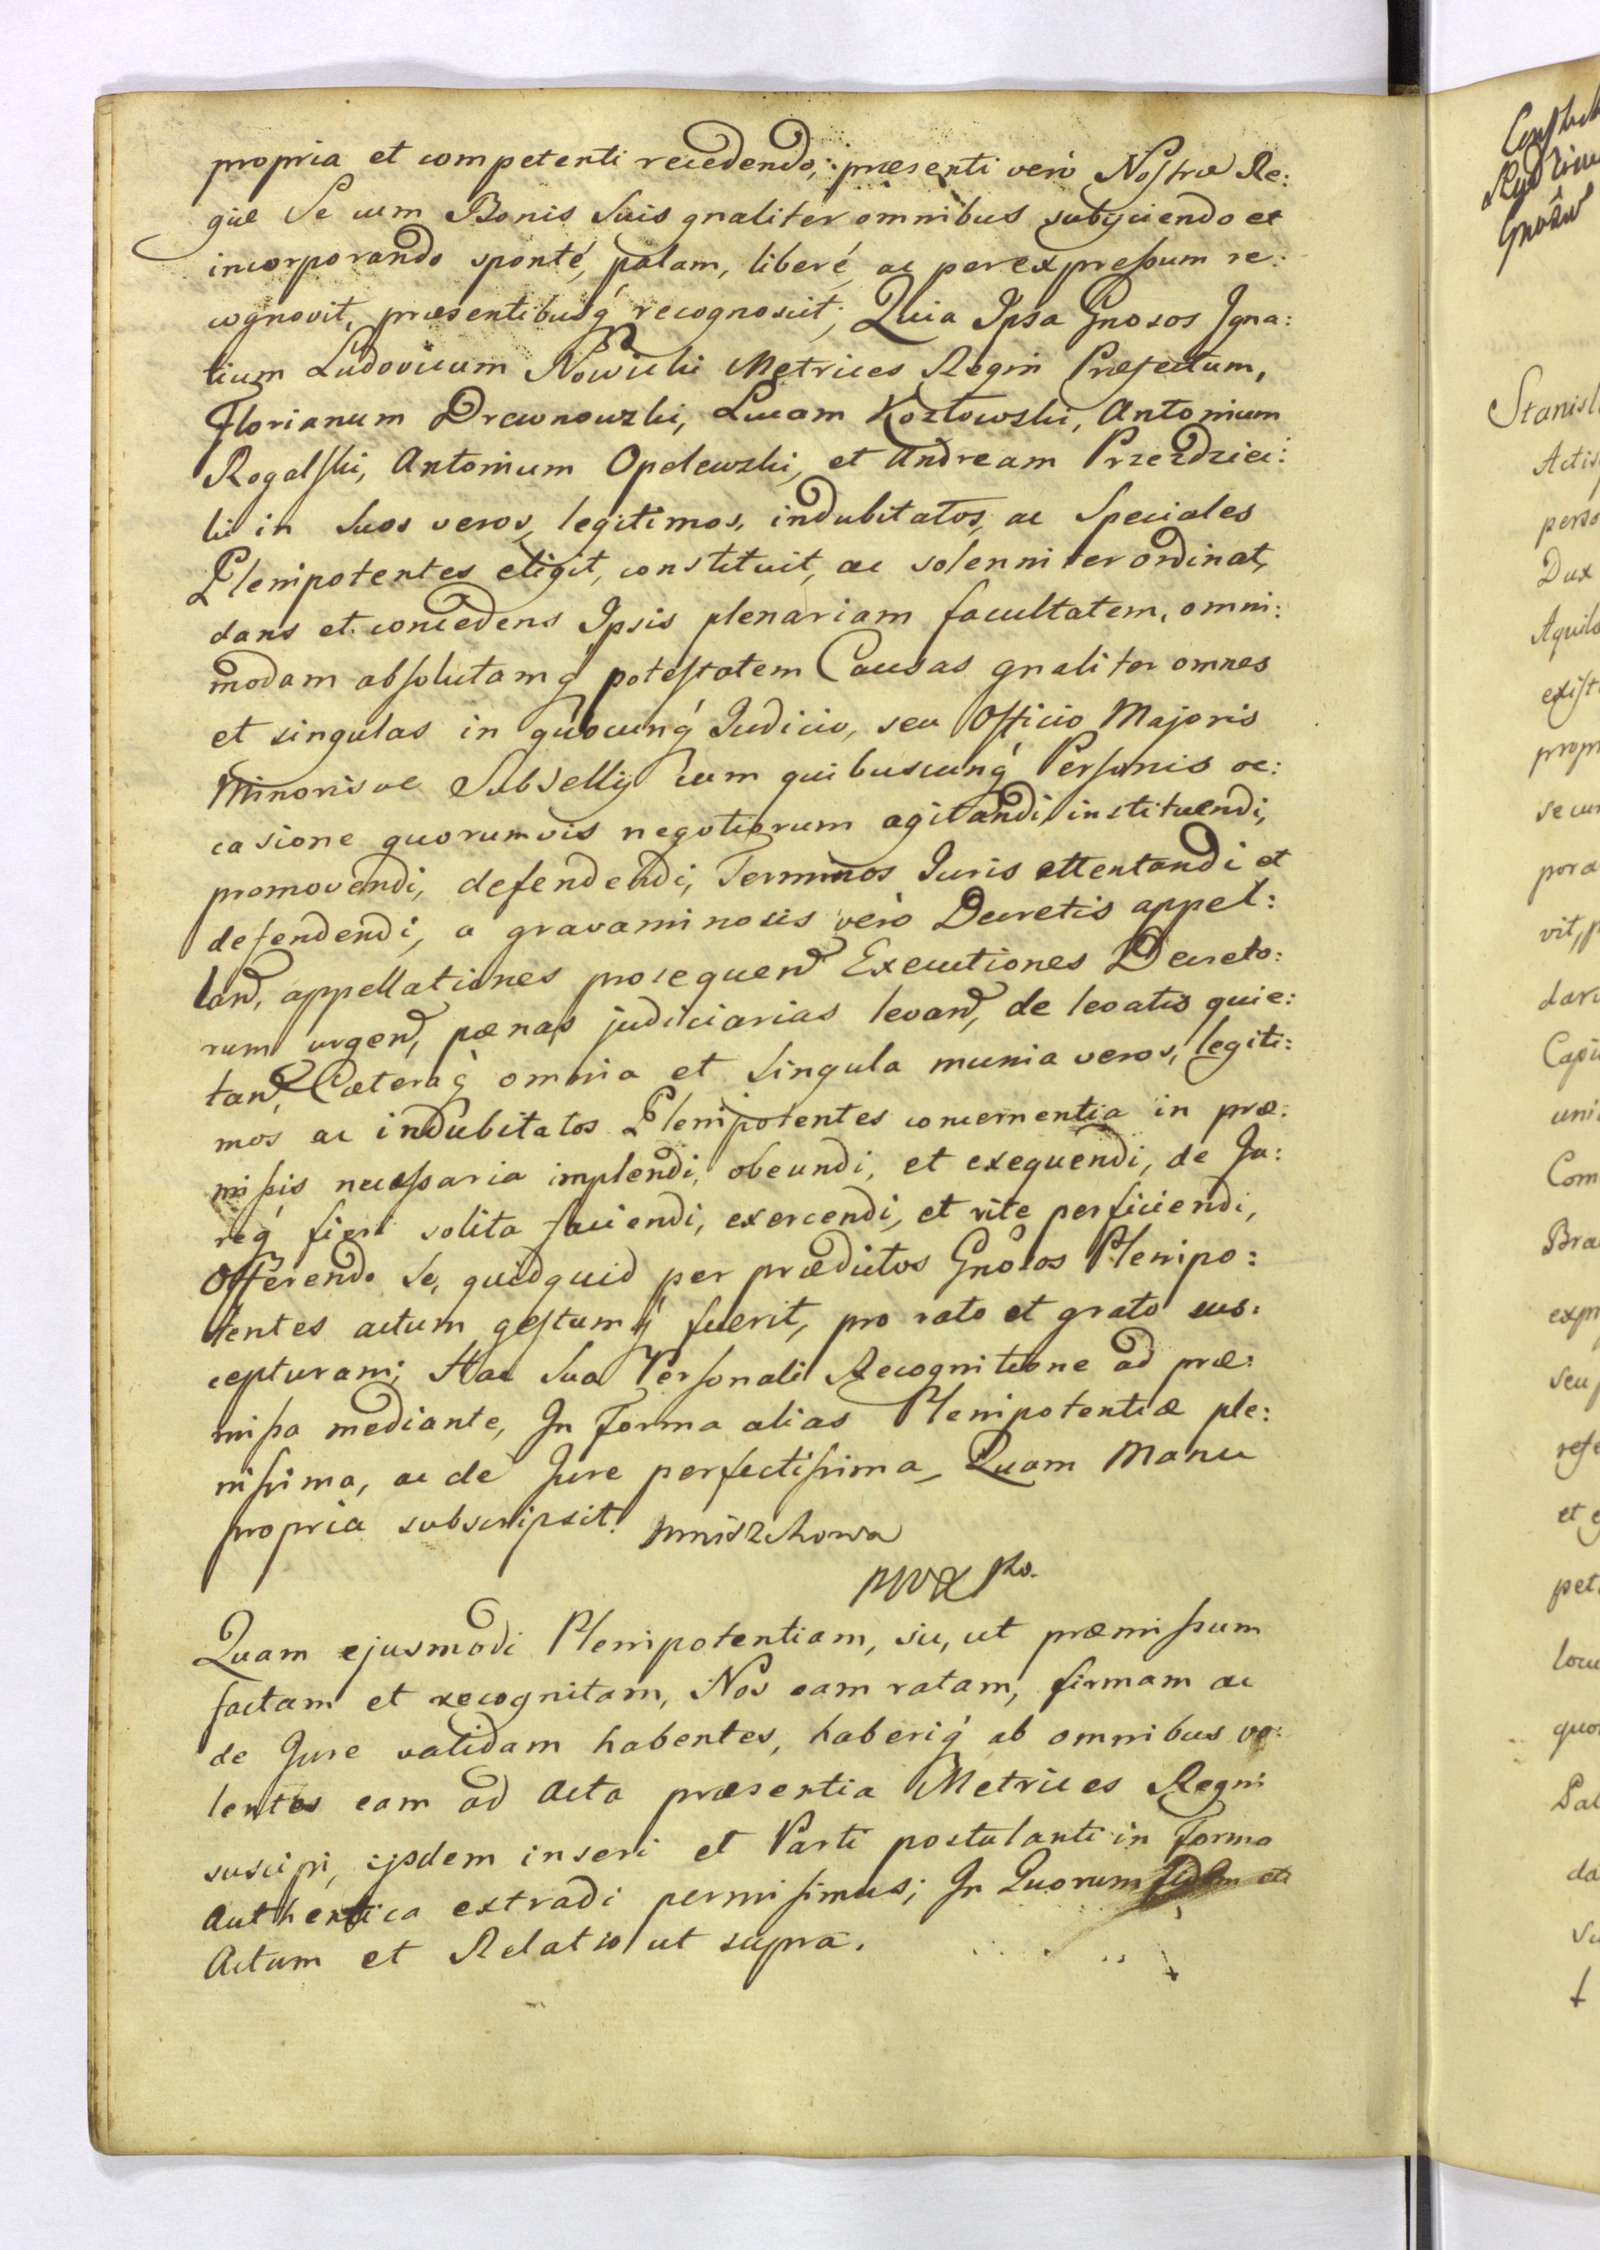 propria et competenti recedendo, præsenti verò Nostræ Re:
giæ Se cum Bonis Suis gnaliter omnibus subyciendo et
incorporando sponté, palam, liberé, ac per expressum re:
cognovit, præsentibusq́ recognoscit; Quia Ipsa Gnosos Igna:
tium Ludovicum Nowicki Metrices Regni Præfectum,
Florianum Drewnowski, Lucam Kozłowski, Antonium
Rogalski, Antonium Opelewski, et Andream Przezdziec:
ki in Suos veros, legitimos, indubitatos, ac Speciales
Plenipotentes eligit, constituit, ac solenniter ordinat,
dans et concedens Ipsis plenariam facultatem, omni:
modam absolutamq́ potestatem Causas gnaliter omnes
et singulas in quocunq́ Judicio, seu Officio Majoris
Minorisve Subsellij cum quibuscunq́ Personis oc:
casione quorumvis negotiorum agitandi, instituendi,
promovendi, defendendi, Terminos Juris attentandi et
defendendi, a gravaminosis verò Decretis appel:
land, appellationes prosequend Executiones Decreto:
rum urgend, pænas judiciarias levand, de levatis quie:
tand, Cæteraq́ omnia et singula munia veros, legiti:
mos ac indubitatos Plenipotentes concernentia in præ:
missis necessaria implendi, obeundi, et exequendi, de Ju:
req́ fieri solita faciendi, exercendi, et rite perficiendi,
Offerendo Se, quidquid per prædictos Gnosos Plenipo:
tentes actum gestumq́ fuerit, pro rato et grato sus:
cepturam; Hac Sua Personali Recognitione ad præ:
missa mediante, In Forma alias Plenipotentiæ ple:
nissima, ac de Jure perfectissima, Quam Manu
propria subscripsit. Mniszchowa
Quam ejusmodi Plenipotentiam, sic, ut præmissum
factam et recognitam, Nos eam ratam, firmam ac
de Jure validam habentes, haberiq́ ab omnibus vo:
lentes eam ad Acta præsentia Metrices Regni
suscipi, ijsdem inseri et Parti postulanti in Forma
Authentica extradi permisimus; In Quorum Fidem etc
Actum et Relatio ut supra.